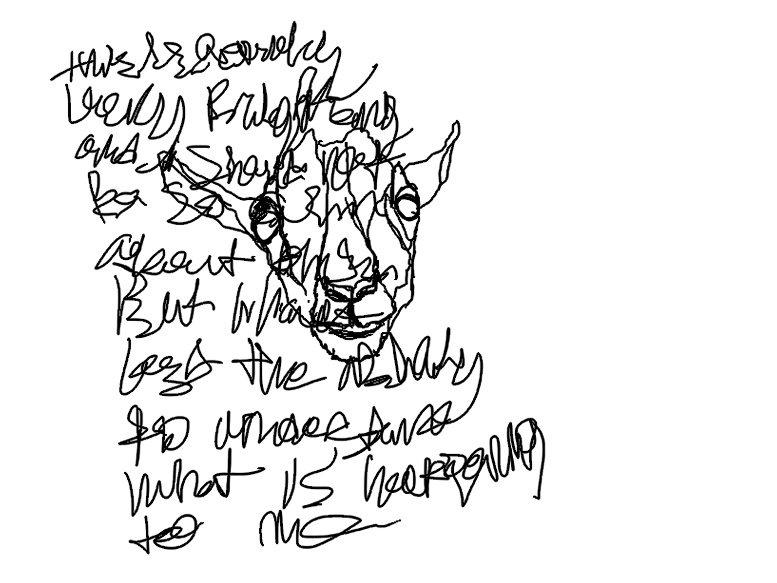 this is Quickly
very Frightening
and I should not
be so calm
about this
But I have
lost the ability
to understand
what is happening
to me